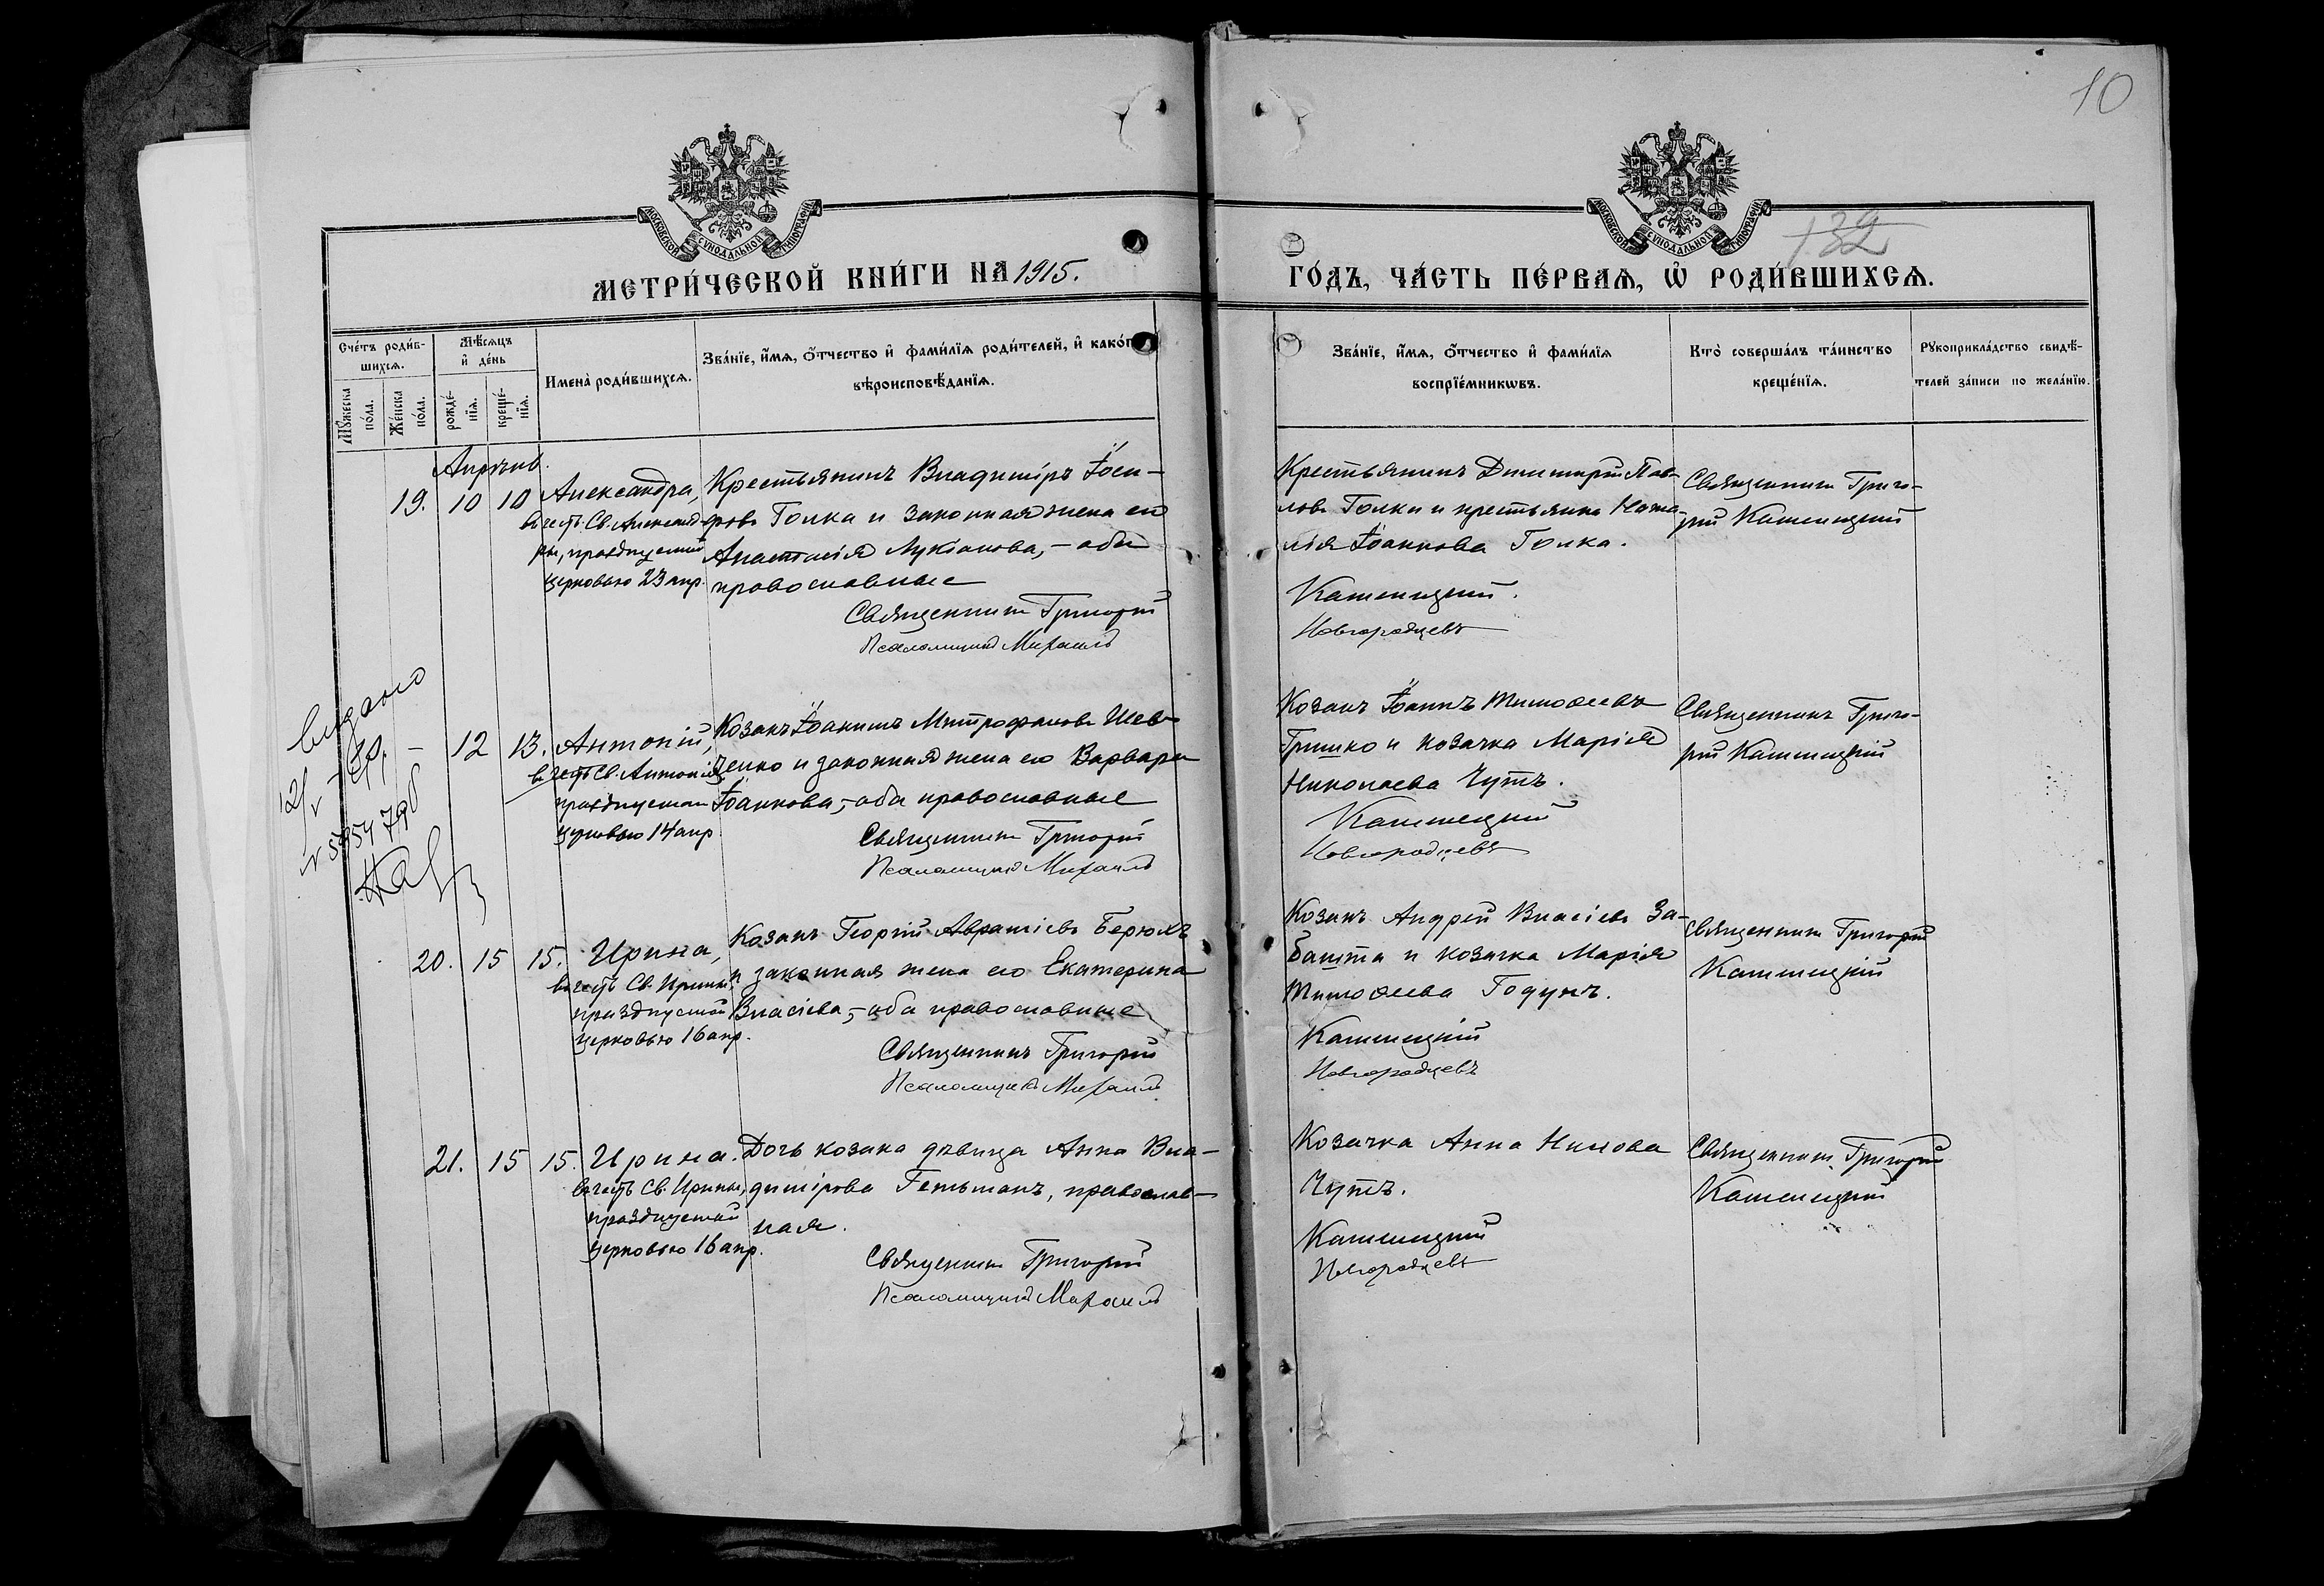 10
132
МОСКОВСКОЙ СУНОДАЛЬНОЙ ТИПОГРАФІИ
МОСКОВСКОЙ СУНОДАЛЬНОЙ ТИПОГРАФІИ
МЕТРИ́ЧЕСКОЙ КНИ́ГИ НА 1915.
ГО́ДЪ, ЧА́СТЬ ПЕ́РВАЯ, Ѡ҆ РОДИ́ВШИХСЯ.
Сче́тъ роди́в-
шихся.
Мꙋ́жеска
по́ла.
Же́нска
по́ла.
Мѣ́сяцъ
и҆ де́нь
рожде́-
нїя.
креще́-
нїя.
Имена̀ роди́вшихся.
Зва́нїе, и҆́мя, ѻ҆́тчество и҆ фами́лїя роди́телей, и҆ како́г
вѣроисповѣ́данїя.
Зва́нїе, и҆́мя, ѻ҆́тчество и҆ фами́лїя
воспрїе́мникѡвъ.
Кто̀ соверша́лъ та́инство
креще́нїя.
Рꙋкоприкла́дство свидѣ́-
телей за́писи по жела́нїю.
Апрѣль.
19. 10 10
Александра,
въ честь Св. Александ-
ры, празднуемой
церковью 23 апр.
Крестьянинъ Владиміръ Іоси-
фовъ Голка и законная жена его
Анастасія Лукіанова, - оба
православные
Священникъ Григорій
Псаломщикъ Михаилъ
Крестьянинъ Димитрій Пав-
ловъ Голка и крестьянка Ната-
лія Іоаннова Голка.
Кашицкій.
Новгородцевъ
Священникъ Григо-
рій Кашицкій
видано
12/V
- 12 13.
Антоній,
въ честь Св. Антонія,
празднуемаго
церковью 14 апр.
Козакъ Іоакимъ Митрофановъ Шев-
ченко и законная жена его Варвара
Іоаннова, - оба православные
Священникъ Григорій
Псаломщикъ Михаилъ
Козакъ Іоаннъ Тимоѳеевъ
Гришко и козачка Марія
Николаева Чутъ.
Кашицкій
Новгородцевъ
Священникъ Григо-
рій Кашицкій
20. 15 15.
Ирина,
въ честь Св. Ирины,
празднуемой
церковью 16 апр.
Козакъ Георгій Авраміевъ Берюхъ
и законная жена его Екатерина
Власіева, - оба православные
Священникъ Григорій
Псаломщикъ Михаилъ
Козакъ Андрей Власіевъ За-
башта и козачка Марія
Тимоѳеева Годунъ.
Кашицкій
Новгородцевъ
Священникъ Григорій
Кашицкій
21. 15 15.
Ирина.
въ честь Св. Ирины,
празднуемой
церковью 16 апр.
Дочь козака дѣвица Анна Вла-
димірова Гетьманъ, православ-
ная.
Священникъ Григорій
Псаломщикъ Михаилъ
Козачка Анна Нилова
Чутъ.
Кашицкій
Новгородцевъ
Священникъ Григорій
Кашицкій